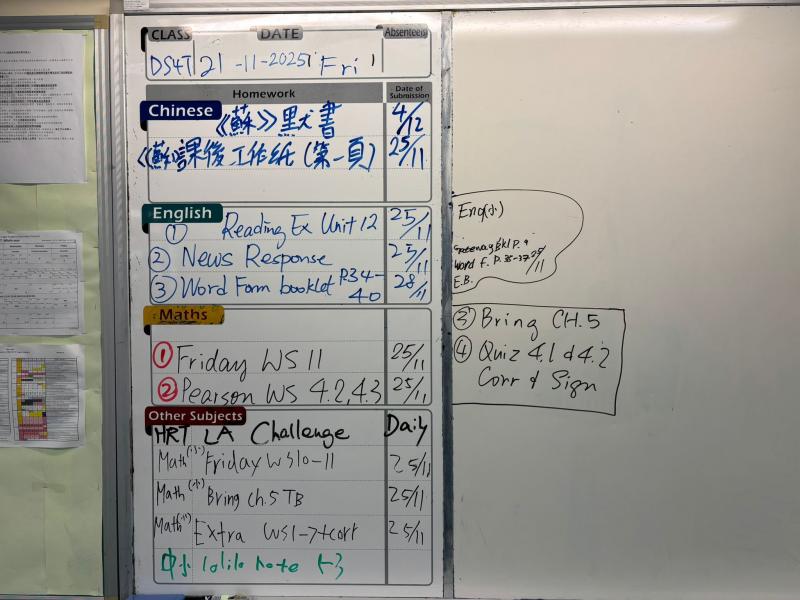 CLASS DATE Absentee(s)
DS4T 21-11-2025 Fri 1
Homework Date of Submission
Chinese
《蘇》默書 4/12
《蘇》課後工作紙(第一頁) 25/11
English
① Reading Ex Unit 12 25/11
② News Response 25/11
③ Word Form booklet P.34-40 28/11
Maths
① Friday WS 11 25/11
② Pearson WS 4.2, 4.3 25/11
Other Subjects
HRT LA Challenge Daily
Math(小) Friday WS10-11 25/11
Math(小) Bring Ch.5 TB 25/11
Math(小) Extra WS1→+corr 25/11
中小 note
Eng(小)
P. 9
Word F. P. 35-37 25/11
E.B.
③ Bring CH.5
④ Quiz 4.1 & 4.2
Corr & Sign